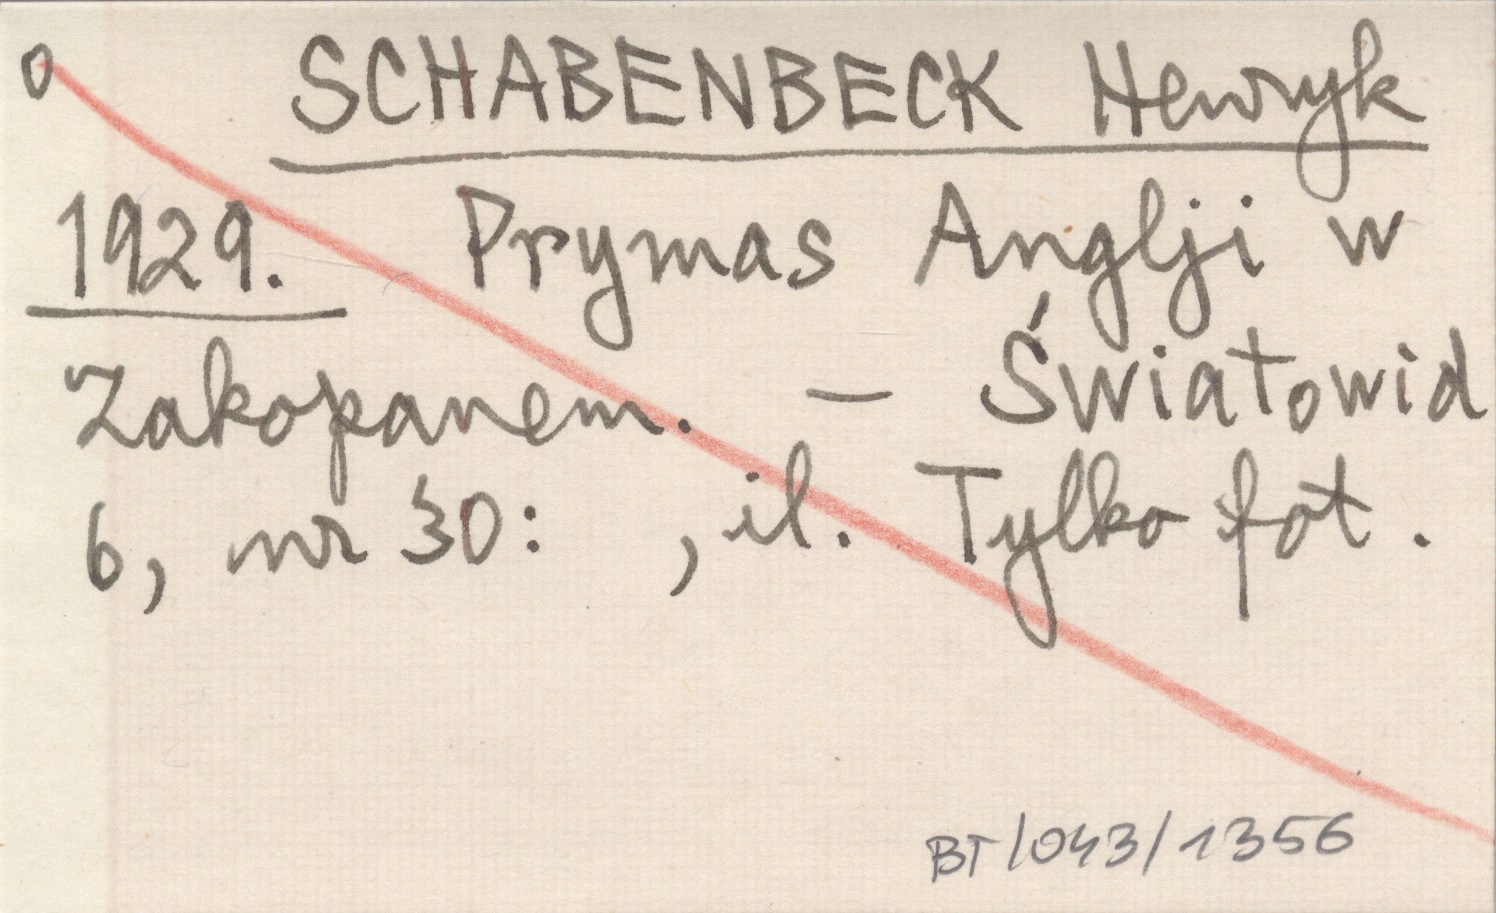 0 SCHABENBECK Henryk
1929. Prymas Anglji w
Zakopanem. – Światowid
6, nr 30: , il. Tylko fot.
BT/043/1356